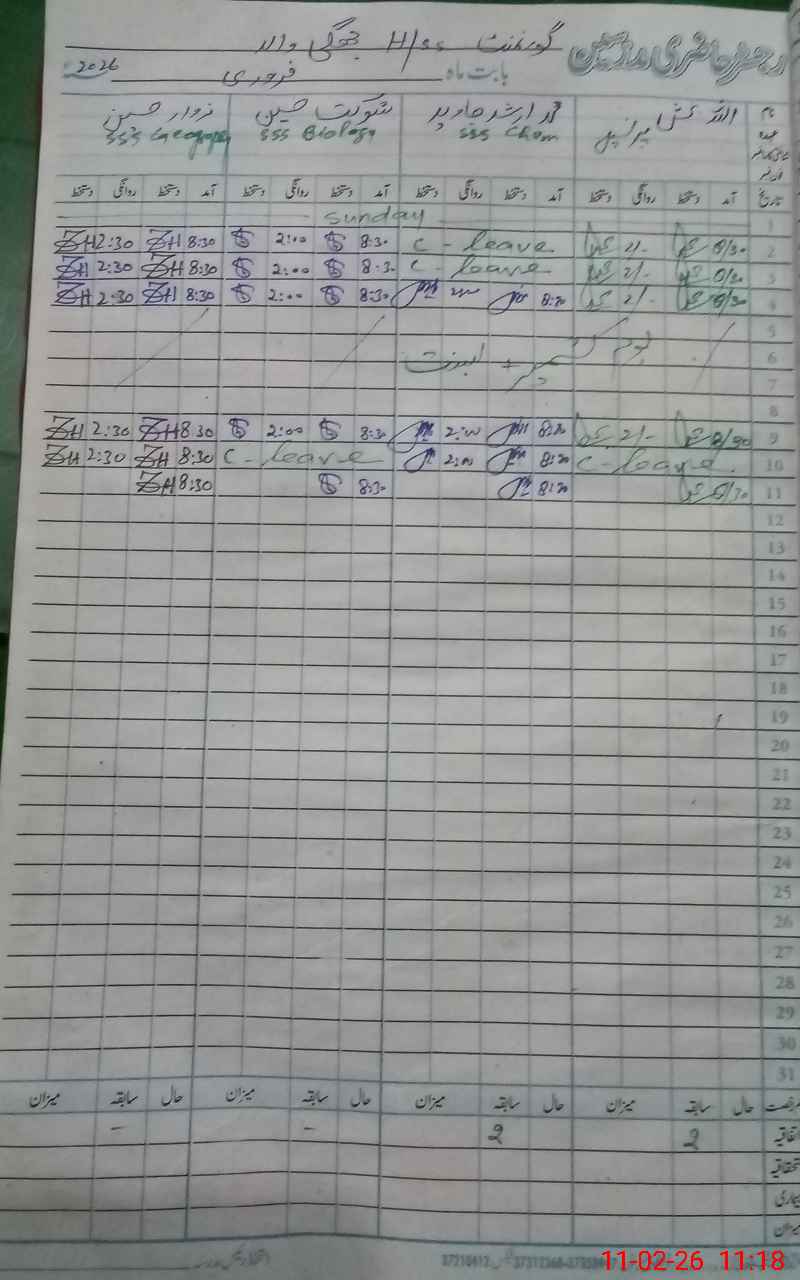 رجسٹر حاضری مدرسین
گورنمنٹ H/SS جھگی والا
بابت ماہ فروری 2026
نام اللہ بخش محمد ارشد جاوید شوکت حسین زوار حسین
عہدہ پرنسپل SSS Chem SSS Biology SSS Geography
تاریخ آمد دستخط روانگی دستخط آمد دستخط روانگی دستخط آمد دستخط روانگی دستخط آمد دستخط روانگی دستخط
1 Sunday
2 8/30 2/- C - leave 8:30 2:00 8:30 ZH 2:30 ZH
3 8/30 2/- C - leave 8:30 2:00 8:30 ZH 2:30 ZH
4 8/30 2/- 8:30 2:00 8:30 2:00 8:30 ZH 2:30 ZH
5
6 یوم کشمیر +
7
8
9 8/30 2/- 8:30 2:00 8:30 2:00 8:30 ZH 2:30 ZH
10 C - leave 8:30 2:00 C - leave 8:30 ZH 2:30 ZH
11 8/30 8:30 8:30 8:30 ZH
12
13
14
15
16
17
18
19
20
21
22
23
24
25
26
27
28
29
30
31
رخصت حال سابقہ میزان حال سابقہ میزان حال سابقہ میزان حال سابقہ میزان
اتفاقیہ 2 2 - -
استحقاقیہ
بیماری
میزان
37210412
11-02-26 11:18